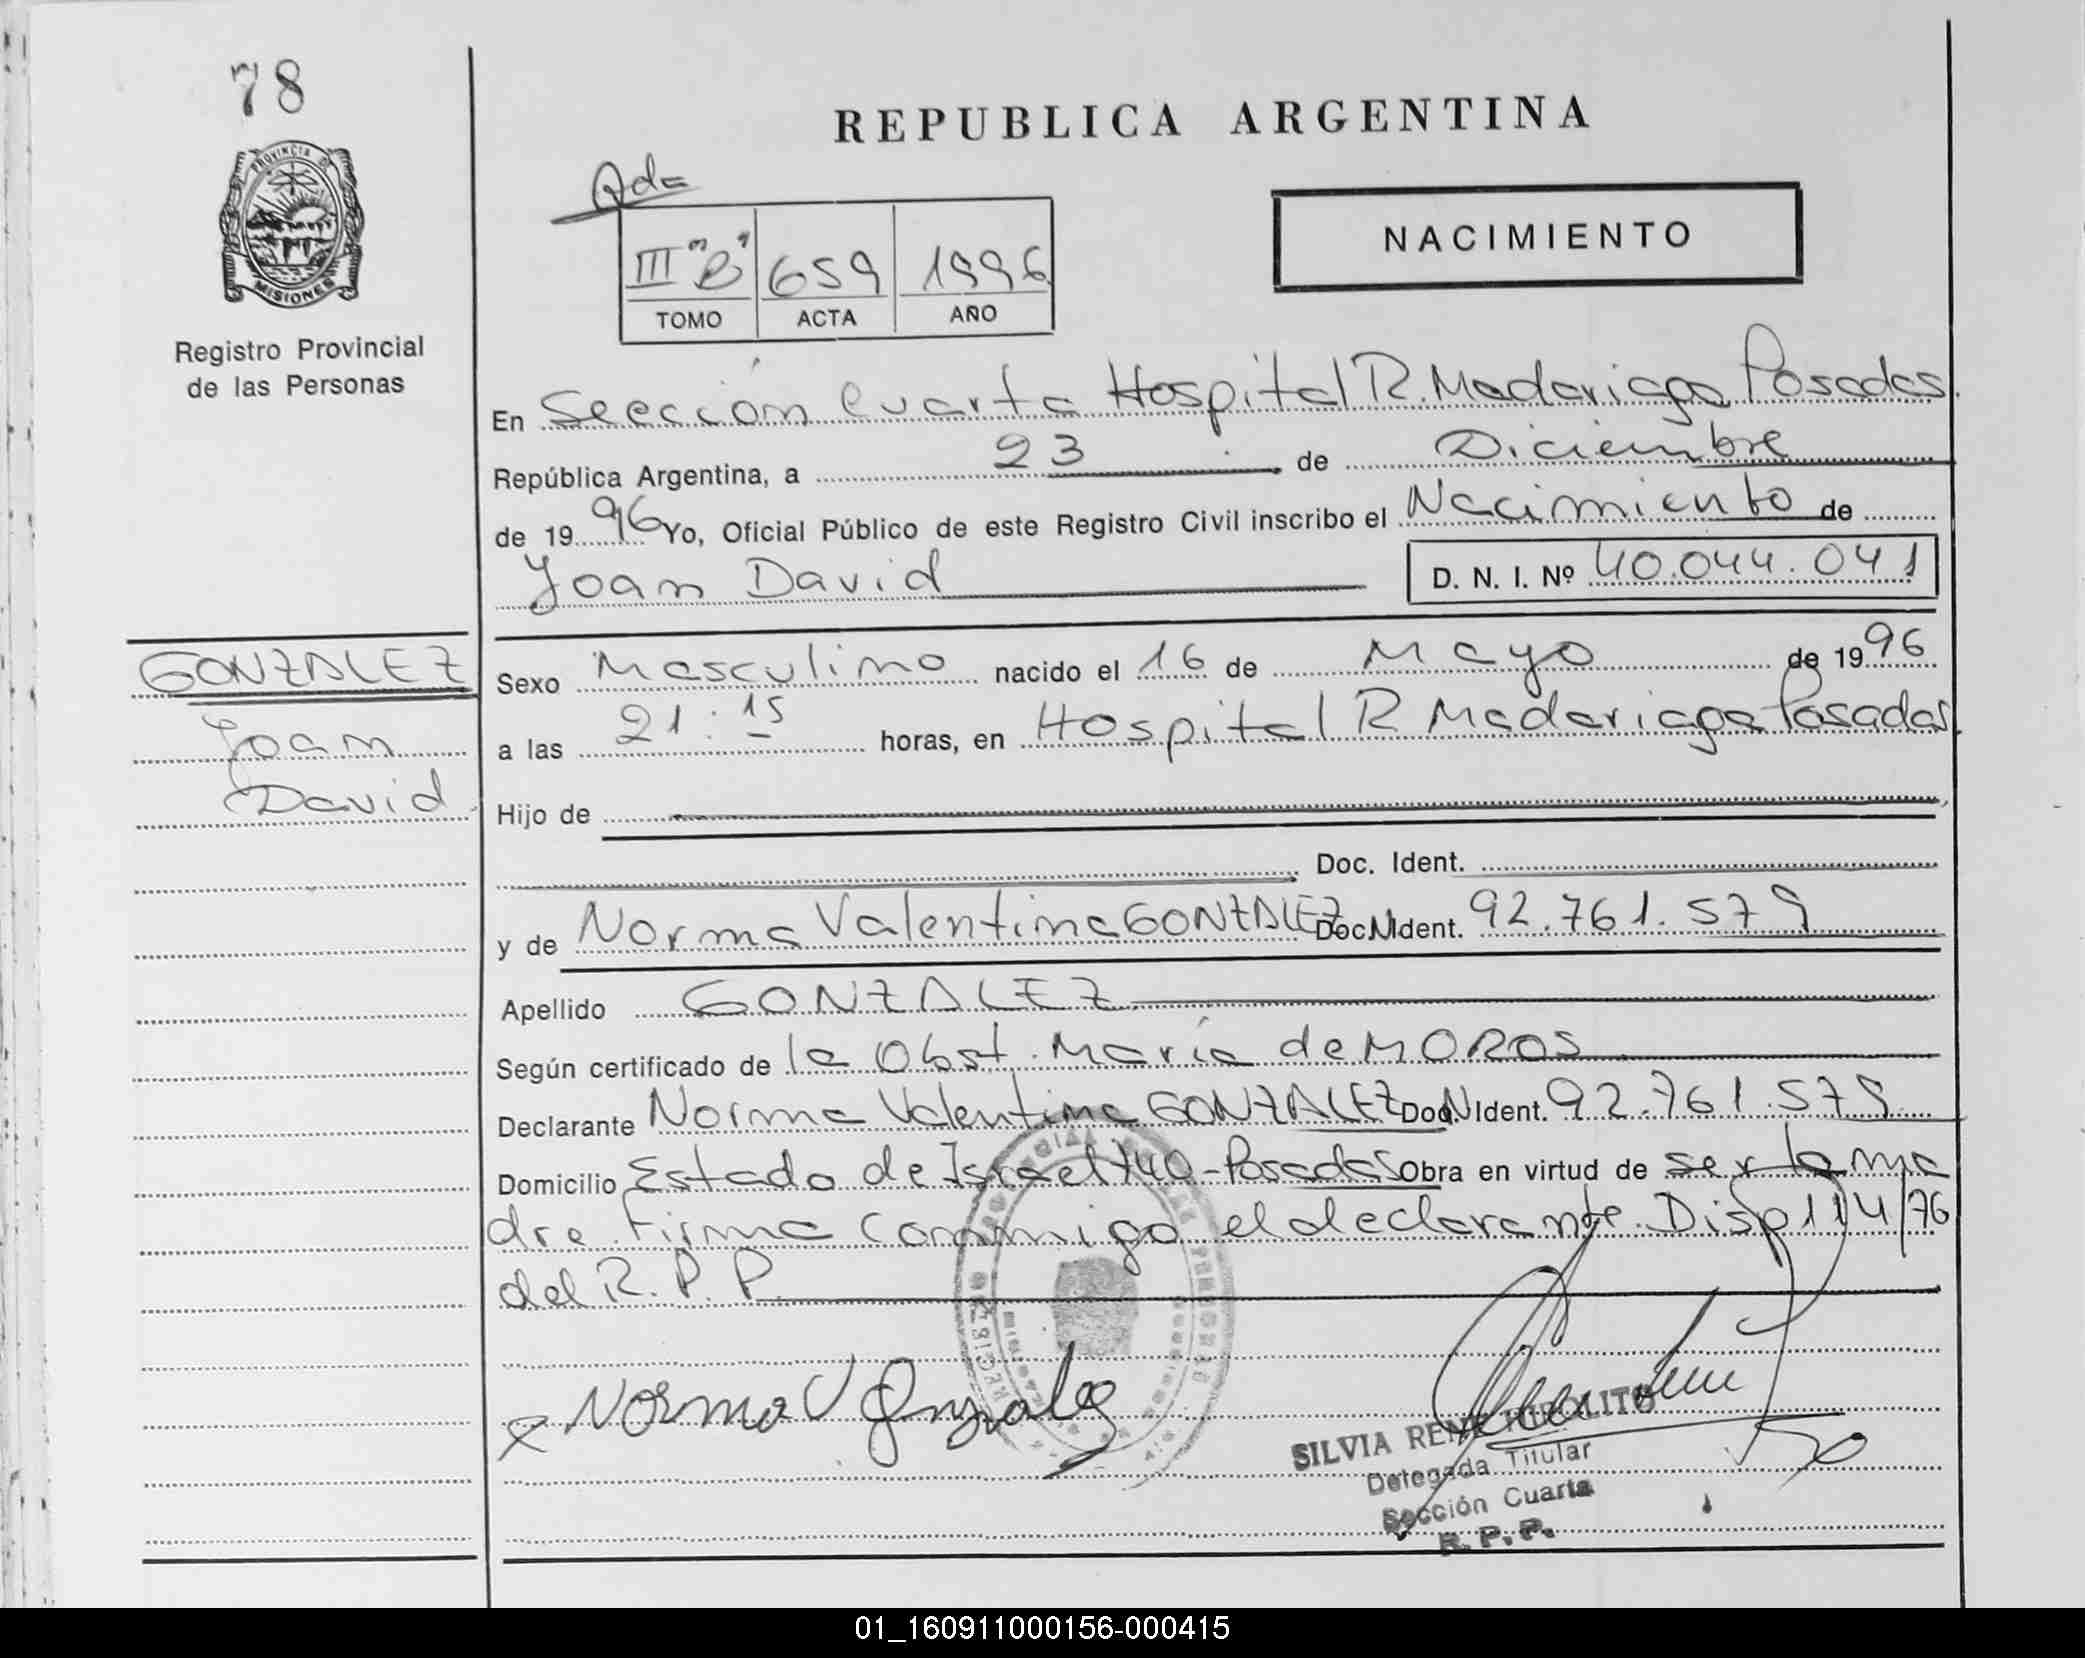 78
REPUBLICA ARGENTINA
PROVINCIA DE
MISIONES
Registro Provincial
de las Personas
III "B" 659 1996
TOMO ACTA AÑO
NACIMIENTO
En Sección Cuarta Hospital R. Madariaga Posadas
República Argentina, a 23 de Diciembre
de 1996 Yo, Oficial Público de este Registro Civil inscribo el Nacimiento de
Joan David D. N. I. Nº 40.044.041
GONZALEZ
Joan
David
Sexo Masculino nacido el 16 de Mayo de 1996
a las 21:15 horas, en Hospital R Madariaga Posadas
Hijo de
Doc. Ident.
y de Norma Valentina GONZALEZ Doc. N Ident. 92.761.579
Apellido GONZALEZ
Según certificado de la Obst. María de MOROS
Declarante Norma Valentina GONZALEZ Doc. N Ident. 92.761.579
Domicilio Estado de Israel 740-Posadas Obra en virtud de ser la ma
dre. Firma conmigo el declarante. Disp 114/76
del R. P. P.
x Norma V Gonzalez
SILVIA RENE HIPOLITO
Delegada Titular
Sección Cuarta
R. P. P.
01_160911000156-000415